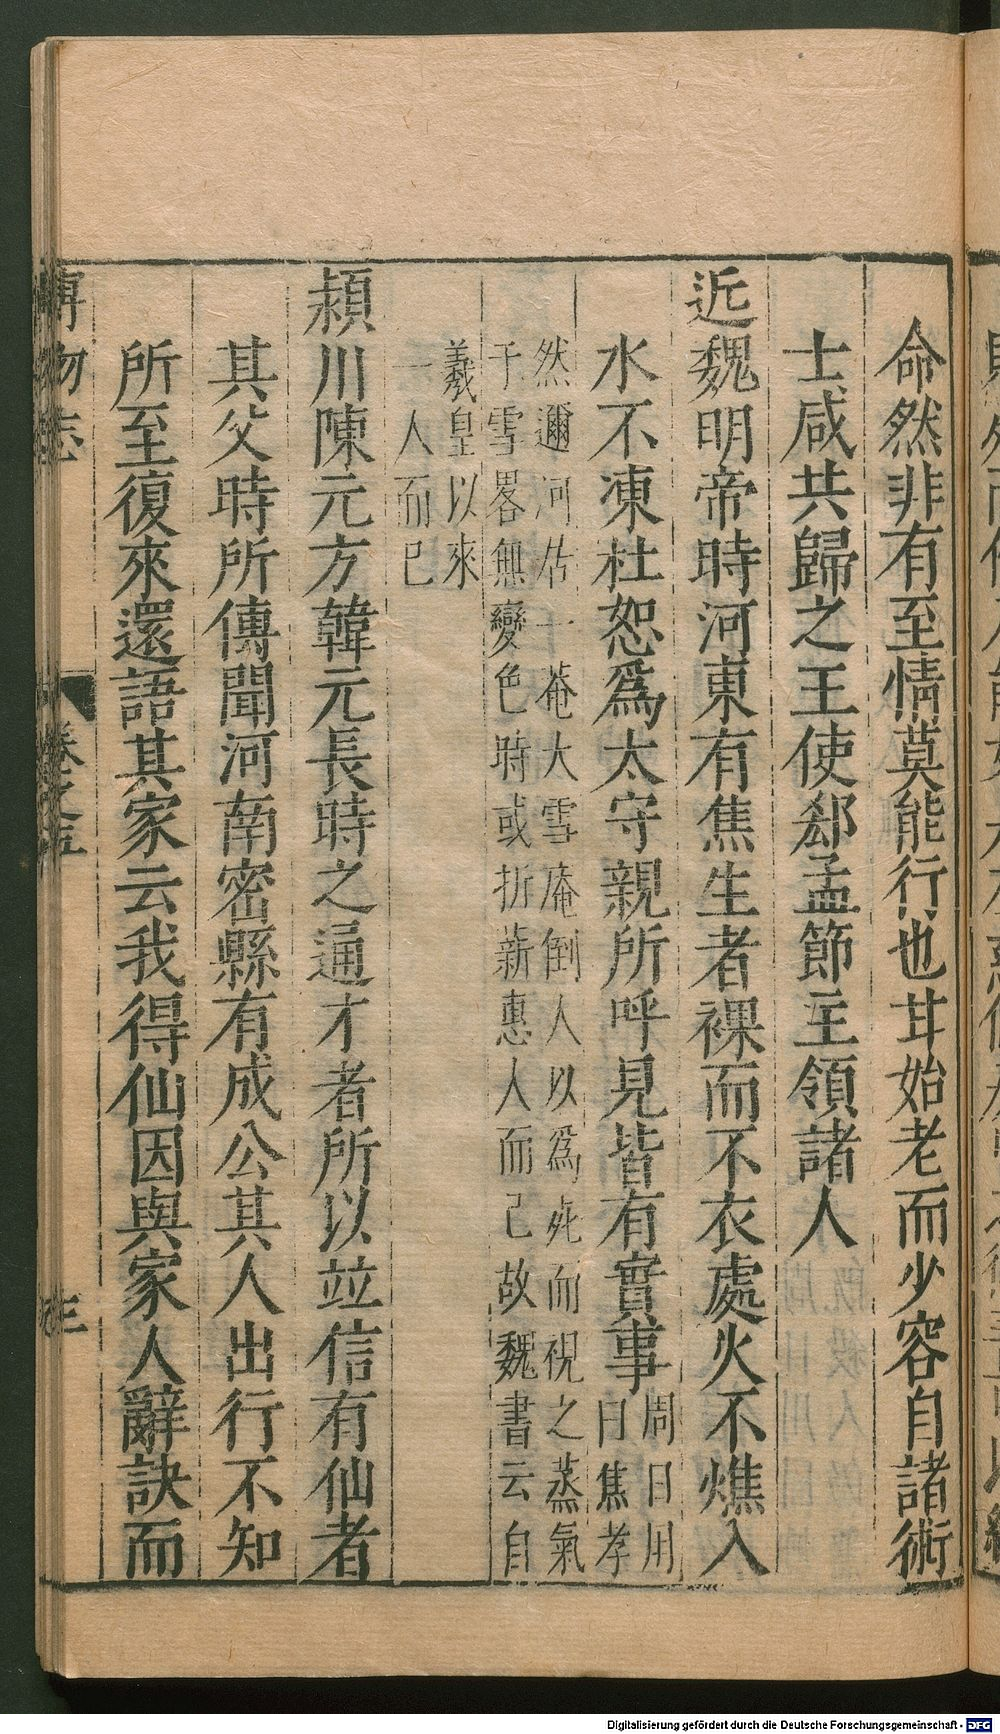 命然非有至情莫能行也甘始老而少容自諸術
士咸共歸之王使郄孟節主領諸人
近魏明帝時河東有焦生者裸而不衣處火不燋入
水不凍杜恕爲太守親所呼見皆有實事
周日用
曰焦孝
然邇河居一菴大雪庵倒人以爲死而視之蒸氣
于雪畧無變色時或折薪惠人而已故魏書云自
羲皇以來
一人而已
潁川陳元方韓元長時之通才者所以並信有仙者
其父時所傳聞河南密縣有成公其人出行不知
所至復來還語其家云我得仙因與家人辭訣而
博物志
卷之五
三
Digitalisierung gefördert durch die Deutsche Forschungsgemeinschaft - DFG